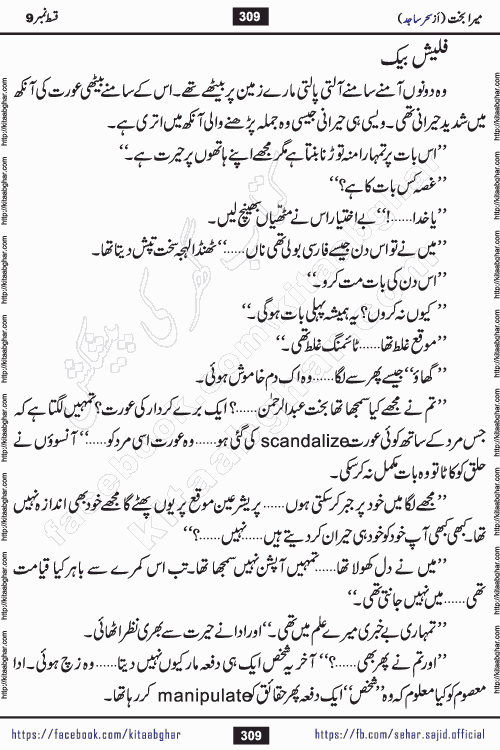 میرا بخت (از سحر ساجد) 309 قسط نمبر 9
فلیش بیک
وہ دونوں آمنے سامنے آلتی پالتی مارے زمین پر بیٹھے تھے۔ اس کے سامنے بیٹھی عورت کی آنکھ
میں شدید حیرانی تھی۔ ویسی ہی حیرانی جیسی وہ جملہ پڑھنے والی آنکھ میں اتری ہے۔
’’اس بات پر تمہارا منہ توڑنا بنتا ہے مگر مجھے اپنے ہاتھوں پر حیرت ہے۔‘‘
’’غصہ کس بات کا ہے؟‘‘
’’یا خدا......!‘‘ بے اختیار اس نے مٹھیاں بھینچ لیں۔
’’میں نے تو اس دن جیسے فارسی بولی تھی ناں......‘‘ ٹھنڈا لہجہ سخت تپش دیتا تھا۔
’’اس دن کی بات مت کرو۔‘‘
’’کیوں نہ کروں؟ یہ ہمیشہ پہلی بات ہوگی۔‘‘
’’موقع غلط تھا...... ٹائمنگ غلط تھی۔‘‘
’’گھاؤ‘‘ جیسے پھر سے لگا...... وہ اک دم خاموش ہوئی۔
’’تم نے مجھے کیا سمجھا تھا بخت عبدالرحمٰن......؟ ایک برے کردار کی عورت؟ تمہیں لگتا ہے کہ
جس مرد کے ساتھ کوئی عورت scandalize کی گئی ہو...... وہ عورت اسی مرد کو......‘‘ آنسوؤں نے
حلق کو کاٹا تو وہ بات مکمل نہ کر سکی۔
’’مجھے لگا میں خود پر جبر کر سکتی ہوں...... پریشر عین موقع پر یوں پھٹے گا مجھے خود بھی اندازہ نہیں
تھا۔ کبھی کبھی آپ خود کو خود ہی حیران کر دیتے ہیں...... نہیں......؟‘‘
’’میں نے دل کھولا تھا...... تمہیں آپشن نہیں سمجھا تھا۔ تب اس کمرے سے باہر کیا قیامت
تھی...... میں نہیں جانتی تھی۔‘‘
’’تمہاری بے خبری میرے علم میں تھی۔‘‘ اور ادا نے حیرت سے بھری نظر اٹھائی۔
’’اور تم نے پھر بھی......؟‘‘ آخر یہ شخص ایک ہی دفعہ مار کیوں نہیں دیتا...... وہ زچ ہوئی۔ ادا
معصوم کو کیا معلوم کہ وہ ’’شخص‘‘ ایک دفعہ پھر حقائق کو manipulate کر رہا تھا۔
https://facebook.com/kitaabghar 309 https://fb.com/sehar.sajid.official
http://kitaabghar.com http://kitaabghar.com http://kitaabghar.com http://kitaabghar.com http://kitaabghar.com http://kitaabghar.com http://kitaabghar.com http://kitaabghar.com
کتاب گھر کی پیشکش
facebook.com/kitaabghar
kitaabghar.com